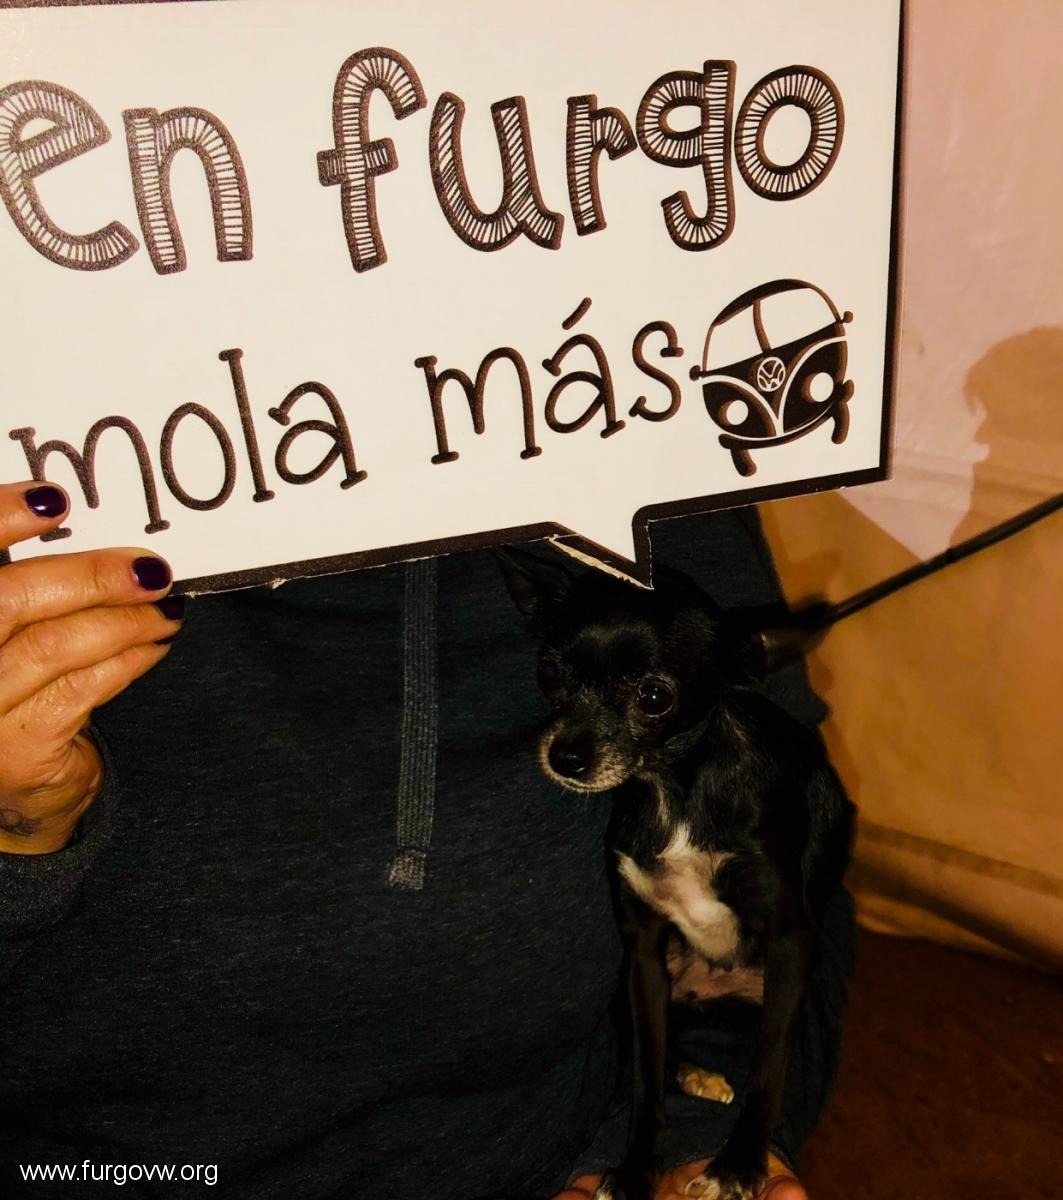 en furgo
mola más
www.furgovw.org